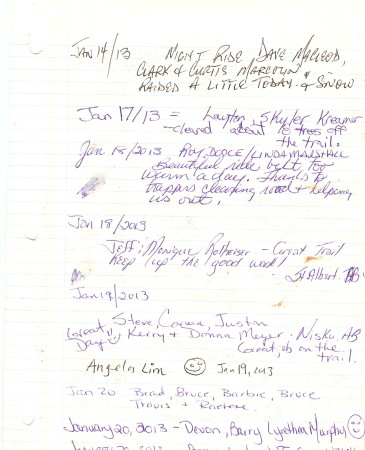 JAN 14/13 MONT RIDE, DAVE MACLEOD,
CLARK & CURTIS
RAIDED A LITTLE TODAY. & SNOW
Jan 17/13 = Layton, Skyler Kreamer
- cleared about 18 trees off
the trail.
Jan 18/2013 ROY DOGCE / LINDA MARSHALL
Beautiful ride but too
warm a day. Thanks to
trappers cleaning road & helping
us out.
Jan 18/2013
Jeff; Monique Rotheiser - Great Trail
Keep up the good work!
St Albert AB
Jan 19/2013
Steve, Conan, Justin
Great Kerry & Donna Meyer. Nisku, AB
Day!! Great job on the
trail.
Angela Lim Jan 19, 2013
Jan 20 Brad, Bruce, Barbie, Bruce
Travis &
January 20, 2013 - Devon, Barry Lynthea Murphy